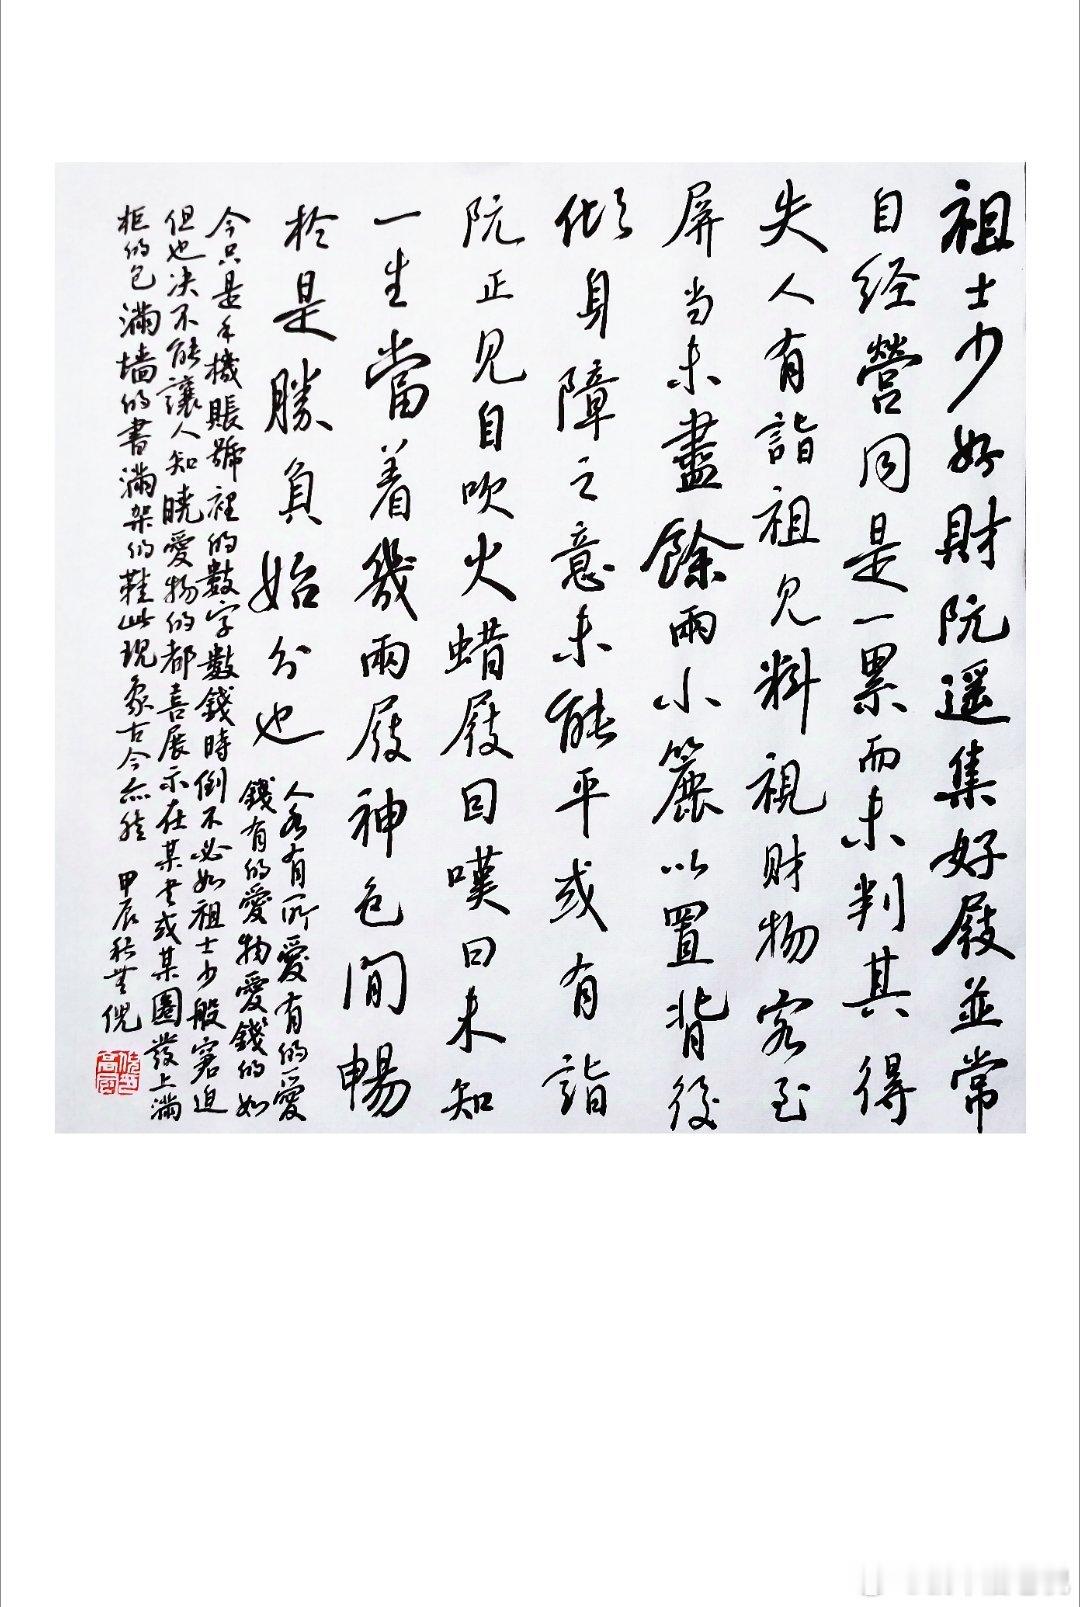 祖士少好財阮遥集好屐並常
自经營同是一累而未判其得
失人有詣祖见料視財物客至
屏当未盡餘兩小簏以置背後
倾身障之意未能平或有詣
阮正见自吹火蜡屐因嘆曰未知
一生當着幾兩屐神色閒暢
於是勝負始分也
人各有所愛有的愛
錢有的愛物愛錢的如
今只是手機賬號裡的數字數錢時倒不必如祖士少般窘迫
但也决不能讓人知曉愛物的都喜展示在某書或某圈發上滿
柜的包滿墙的書滿架的鞋此現象古今亦然 甲辰秋 倪